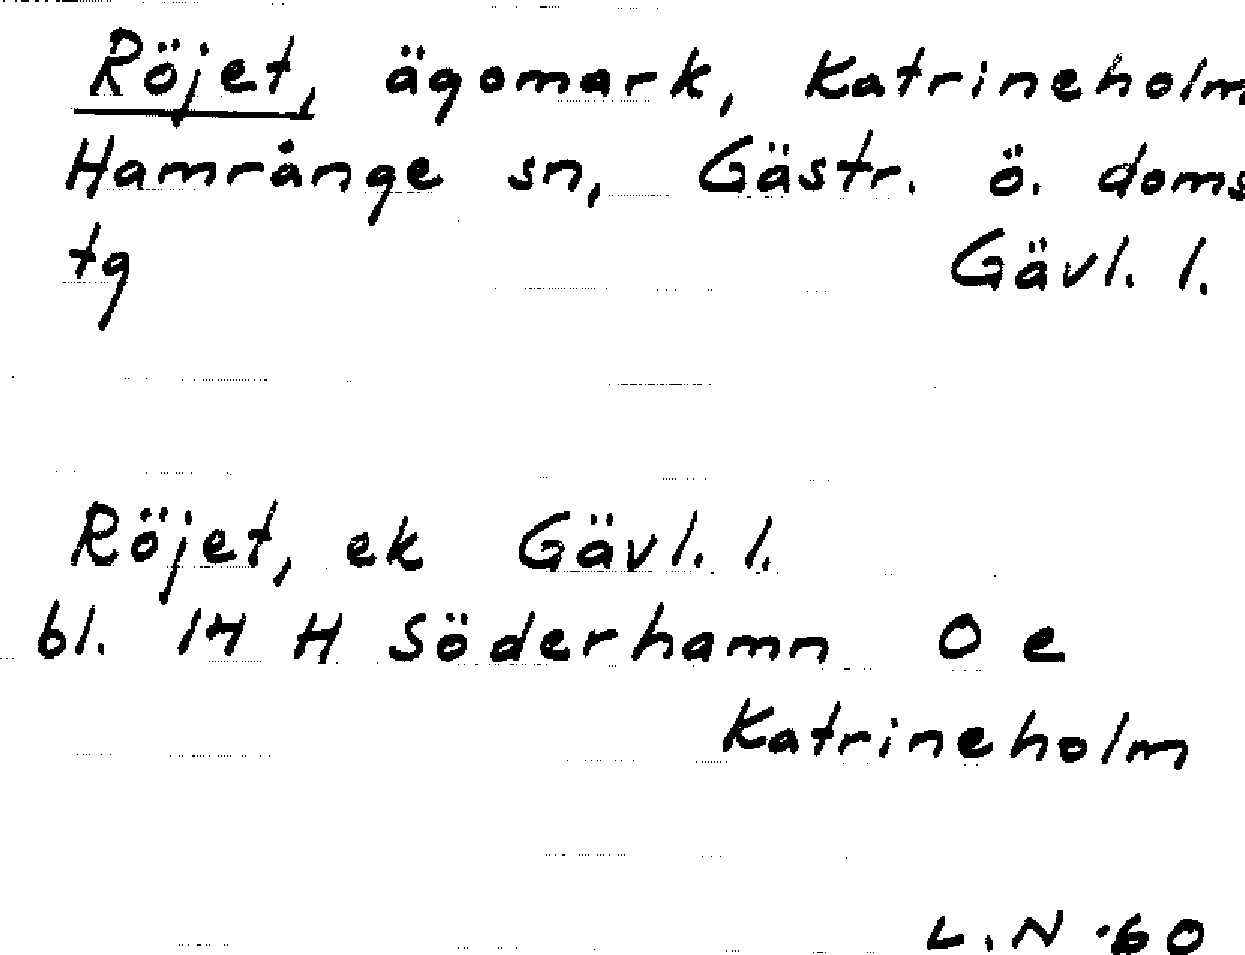 Röjet, ägomark, Katrineholm
Hamrånge sn, Gästr. ö. doms
tg Gävl. l.
Röjet, ek Gävl. l.
bl. 14 H Söderhamn 0 e
Katrineholm
L.N -60